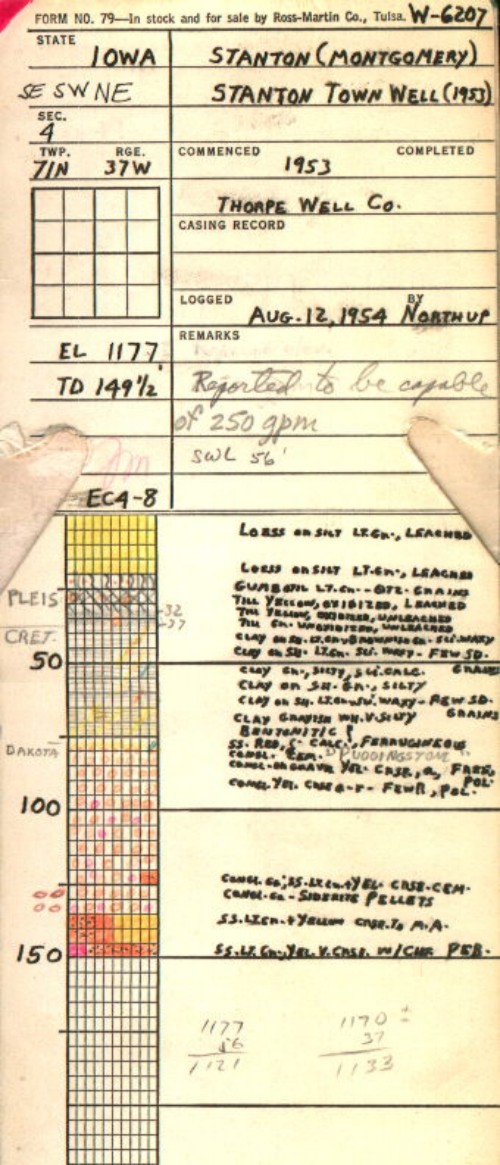 FORM NO. 79—In stock and for sale by Ross-Martin Co., Tulsa. W-6207
STATE IOWA STANTON (MONTGOMERY)
SE SW NE STANTON TOWN WELL (1953)
SEC. 4
TWP. RGE. COMMENCED COMPLETED
71N 37W 1953
THORPE WELL CO.
CASING RECORD
LOGGED BY
AUG. 12, 1954 NORTHUP
EL 1177 REMARKS
TD 149½' Reported to be capable
of 250 gpm
SWL 56'
EC4-8
LOESS OR SILT LT.GN., LEACHED
LOESS OR SILT LT.GN., LEACHED
GUMBOTIL LT.GN.- QTZ. GRAINS
PLEIS TILL YELLOW, OXIDIZED, LEACHED
TILL YELLOW, OXIDIZED, UNLEACHED
32
TILL GN. UNOXIDIZED, UNLEACHED
37
CRET. CLAY OR SH. LT.GN. BROWNISH GN. SLI. WAXY
CLAY OR SH. LT.GN. SLI. WAXY - FEW SD.
50 GRAINS
CLAY GN., SILTY, SLI. CALC.
CLAY OR SH. GN., SILTY
CLAY OR SH. LT.GN. SLI. WAXY - FEW SD.
GRAINS
CLAY GRAYISH WH. V. SILTY
BENTONITIC
SS. RED, CALC., FERRUGINEOUS
DAKOTA CONGL. CEM. "PUDDINGSTONE"
CONGL. OR GRAVR YEL. CRSE,
POL.
CONGL. YEL. CRSE POL.
100
CONGL. SS. LT.GN. + YEL. CRSE. CEM.
CONGL. - SIDERITE PELLETS
SS. LT.GN. + YELLOW CRSE. TO M.A.
150 SS. LT. GN., YEL. V. CRSE. W/ CHT PEB.
1177 1170 ±
56 37
1121 1133